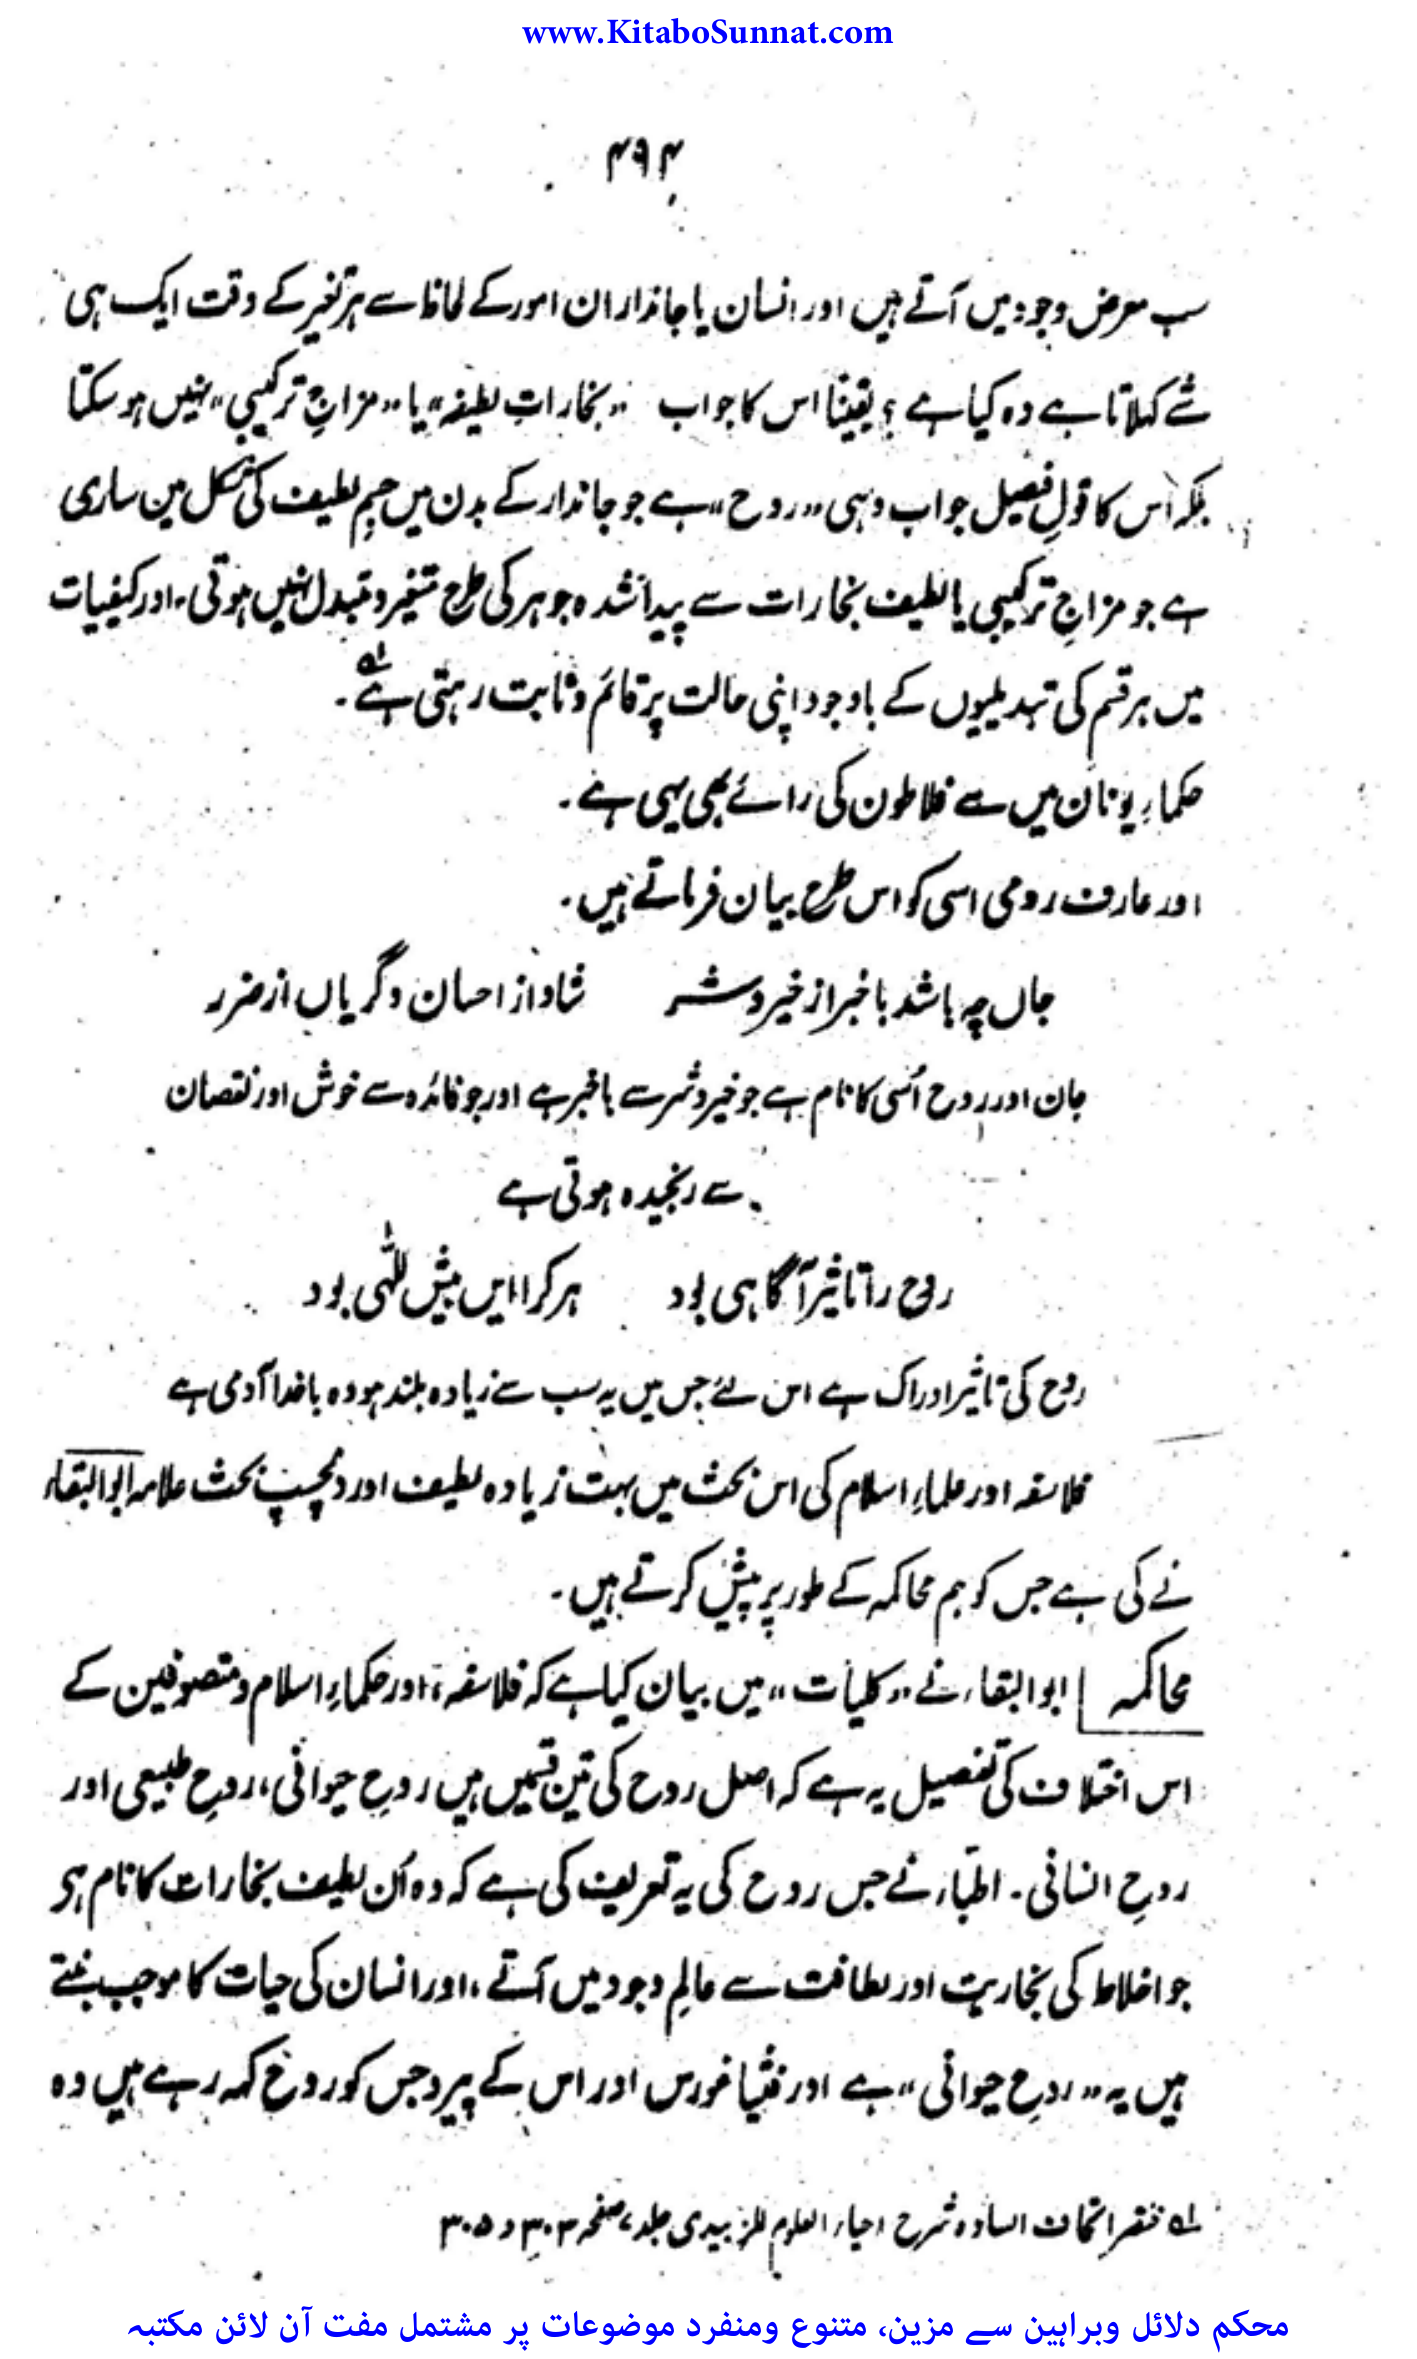 www.KitaboSunnat.com
۴۹۴
سب معرض وجود میں آتے ہیں اور انسان یا جاندار ان امور کے لحاظ سے ہر تغیر کے وقت ایک ہی
شے کہلاتا ہے وہ کیا ہے؟ یقیناً اس کا جواب "بخاراتِ لطیفہ" یا "مزاجِ ترکیبی" نہیں ہو سکتا
بلکہ اُس کا قولِ فیصل جواب وہی "روح" ہے جو جاندار کے بدن میں جسمِ لطیف کی شکل میں ساری
ہے جو مزاجِ ترکیبی یا لطیف بخارات سے پیدا شدہ جوہر کی طرح متغیر و متبدل نہیں ہوتی۔ اور کیفیات
میں ہر قسم کی تبدیلیوں کے باوجود اپنی حالت پر قائم و ثابت رہتی ہے ۱؎۔
حکماءِ یونان میں سے فلاطون کی رائے بھی یہی ہے۔
اور عارف رومی اسی کو اس طرح بیان فرماتے ہیں۔
جاں چہ باشد با خبر از خیر و شر شاد از احسان و گریاں از ضرر
جان اور روح اُسی کا نام ہے جو خیر و شر سے باخبر ہے اور جو فائدہ سے خوش اور نقصان
سے رنجیدہ ہوتی ہے
روح را تاثیر آگاہی بود ہر کرا ایں بیش للّٰہی بود
روح کی تاثیر ادراک ہے اس لئے جس میں یہ سب سے زیادہ بلند ہو وہ باخدا آدمی ہے
فلاسفہ اور علماءِ اسلام کی اس بحث میں بہت زیادہ لطیف اور دلچسپ بحث علامہ ابوالبقاء
نے کی ہے جس کو ہم محاکمہ کے طور پر پیش کرتے ہیں۔
محاکمہ ابوالبقاء نے "کلیات" میں بیان کیا ہے کہ فلاسفہ، اور حکماءِ اسلام و متصوفین کے
اس اختلاف کی تفصیل یہ ہے کہ اصل روح کی تین قسمیں ہیں روحِ حیوانی، روحِ طبیعی اور
روحِ انسانی۔ اطباء نے جس روح کی یہ تعریف کی ہے کہ وہ اُن لطیف بخارات کا نام ہی
جو اخلاط کی بخاریت اور لطافت سے عالمِ وجود میں آتے، اور انسان کی حیات کا موجب بنتے
ہیں یہ "روحِ حیوانی" ہے اور فیثاغورس اور اس کے پیرو جس کو روح کہہ رہے ہیں وہ
۱؎ اتحاف السادہ شرح احیاء العلوم للزبیدی جلد ۷ صفحہ ۳۰۳ و ۳۰۵
محکم دلائل وبراہین سے مزین، متنوع ومنفرد موضوعات پر مشتمل مفت آن لائن مکتبہ